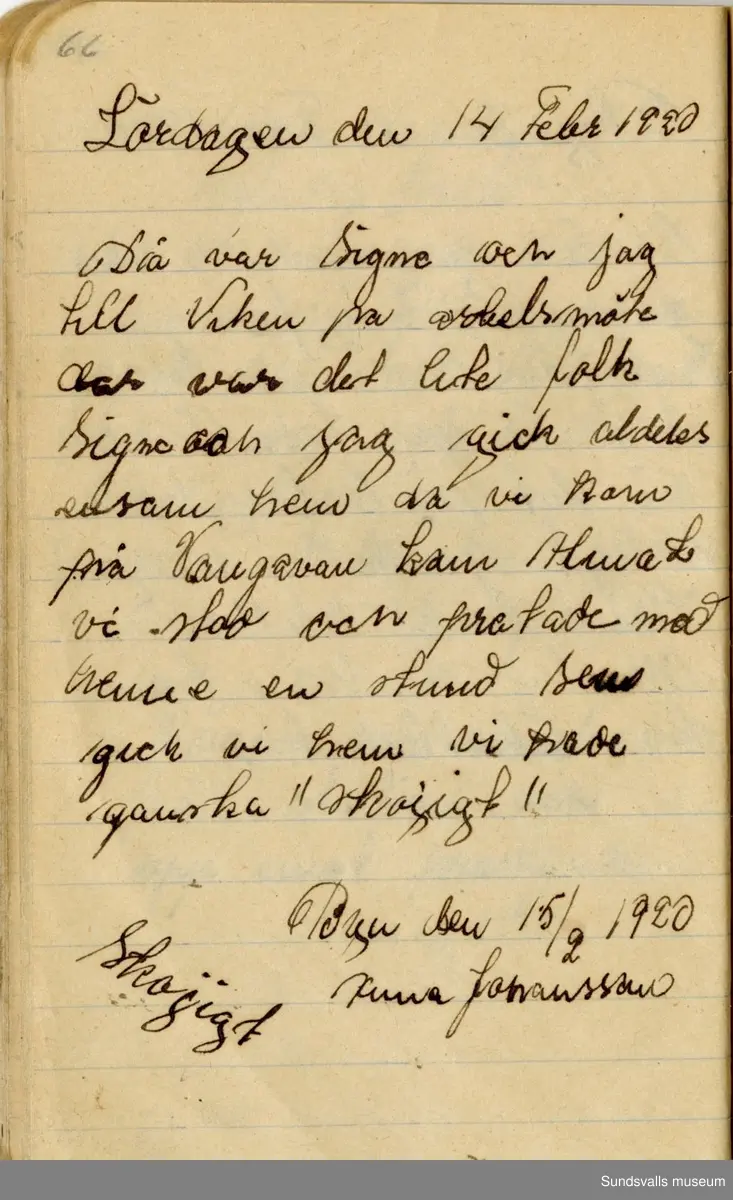 66
Lördagen den 14 Febr 1920
Då var Signe och jag
till Viken på arbetsmöte
dar var det lite folk
Signe och jag gick aldeles
ensam hem då vi kom
på Vangavan kam Alma
vi stod och pratade med
henne en stund sen
gick vi hem vi hade
ganska "skojigt"
Byn den 15/2 1920
Anna Johansson
Skojigt
Sundsvalls museum